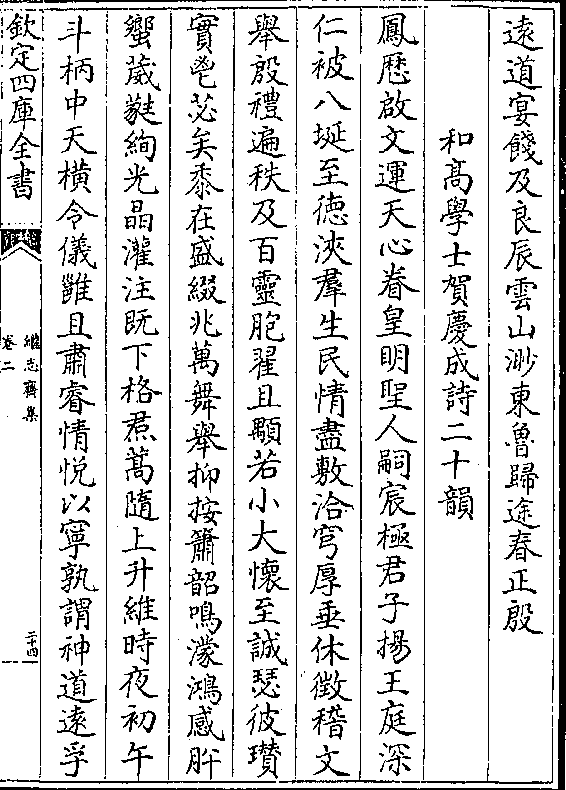 遠道宴餞及良辰雲山渺東魯歸途春正殷
和髙學士賀慶成詩二十韻
鳳厯啟文運天心眷皇明聖人嗣宸極君子揚王庭深
仁被八埏至徳浹羣生民情盡敷洽穹厚垂休徴稽文
舉殷禮遍秩及百靈胞翟且顒若小大懷至誠瑟彼瓉
實鬯苾矣黍在盛綴兆萬舞舉抑按簫韶鳴濛鴻感肸
蠁葳蕤絢光晶灌注既下格焄蒿隨上升維時夜初午
斗柄中天橫令儀雝且肅睿情悦以寧孰謂神道遠孚
欽定四庫全書
繼志齋集
卷二
二十四